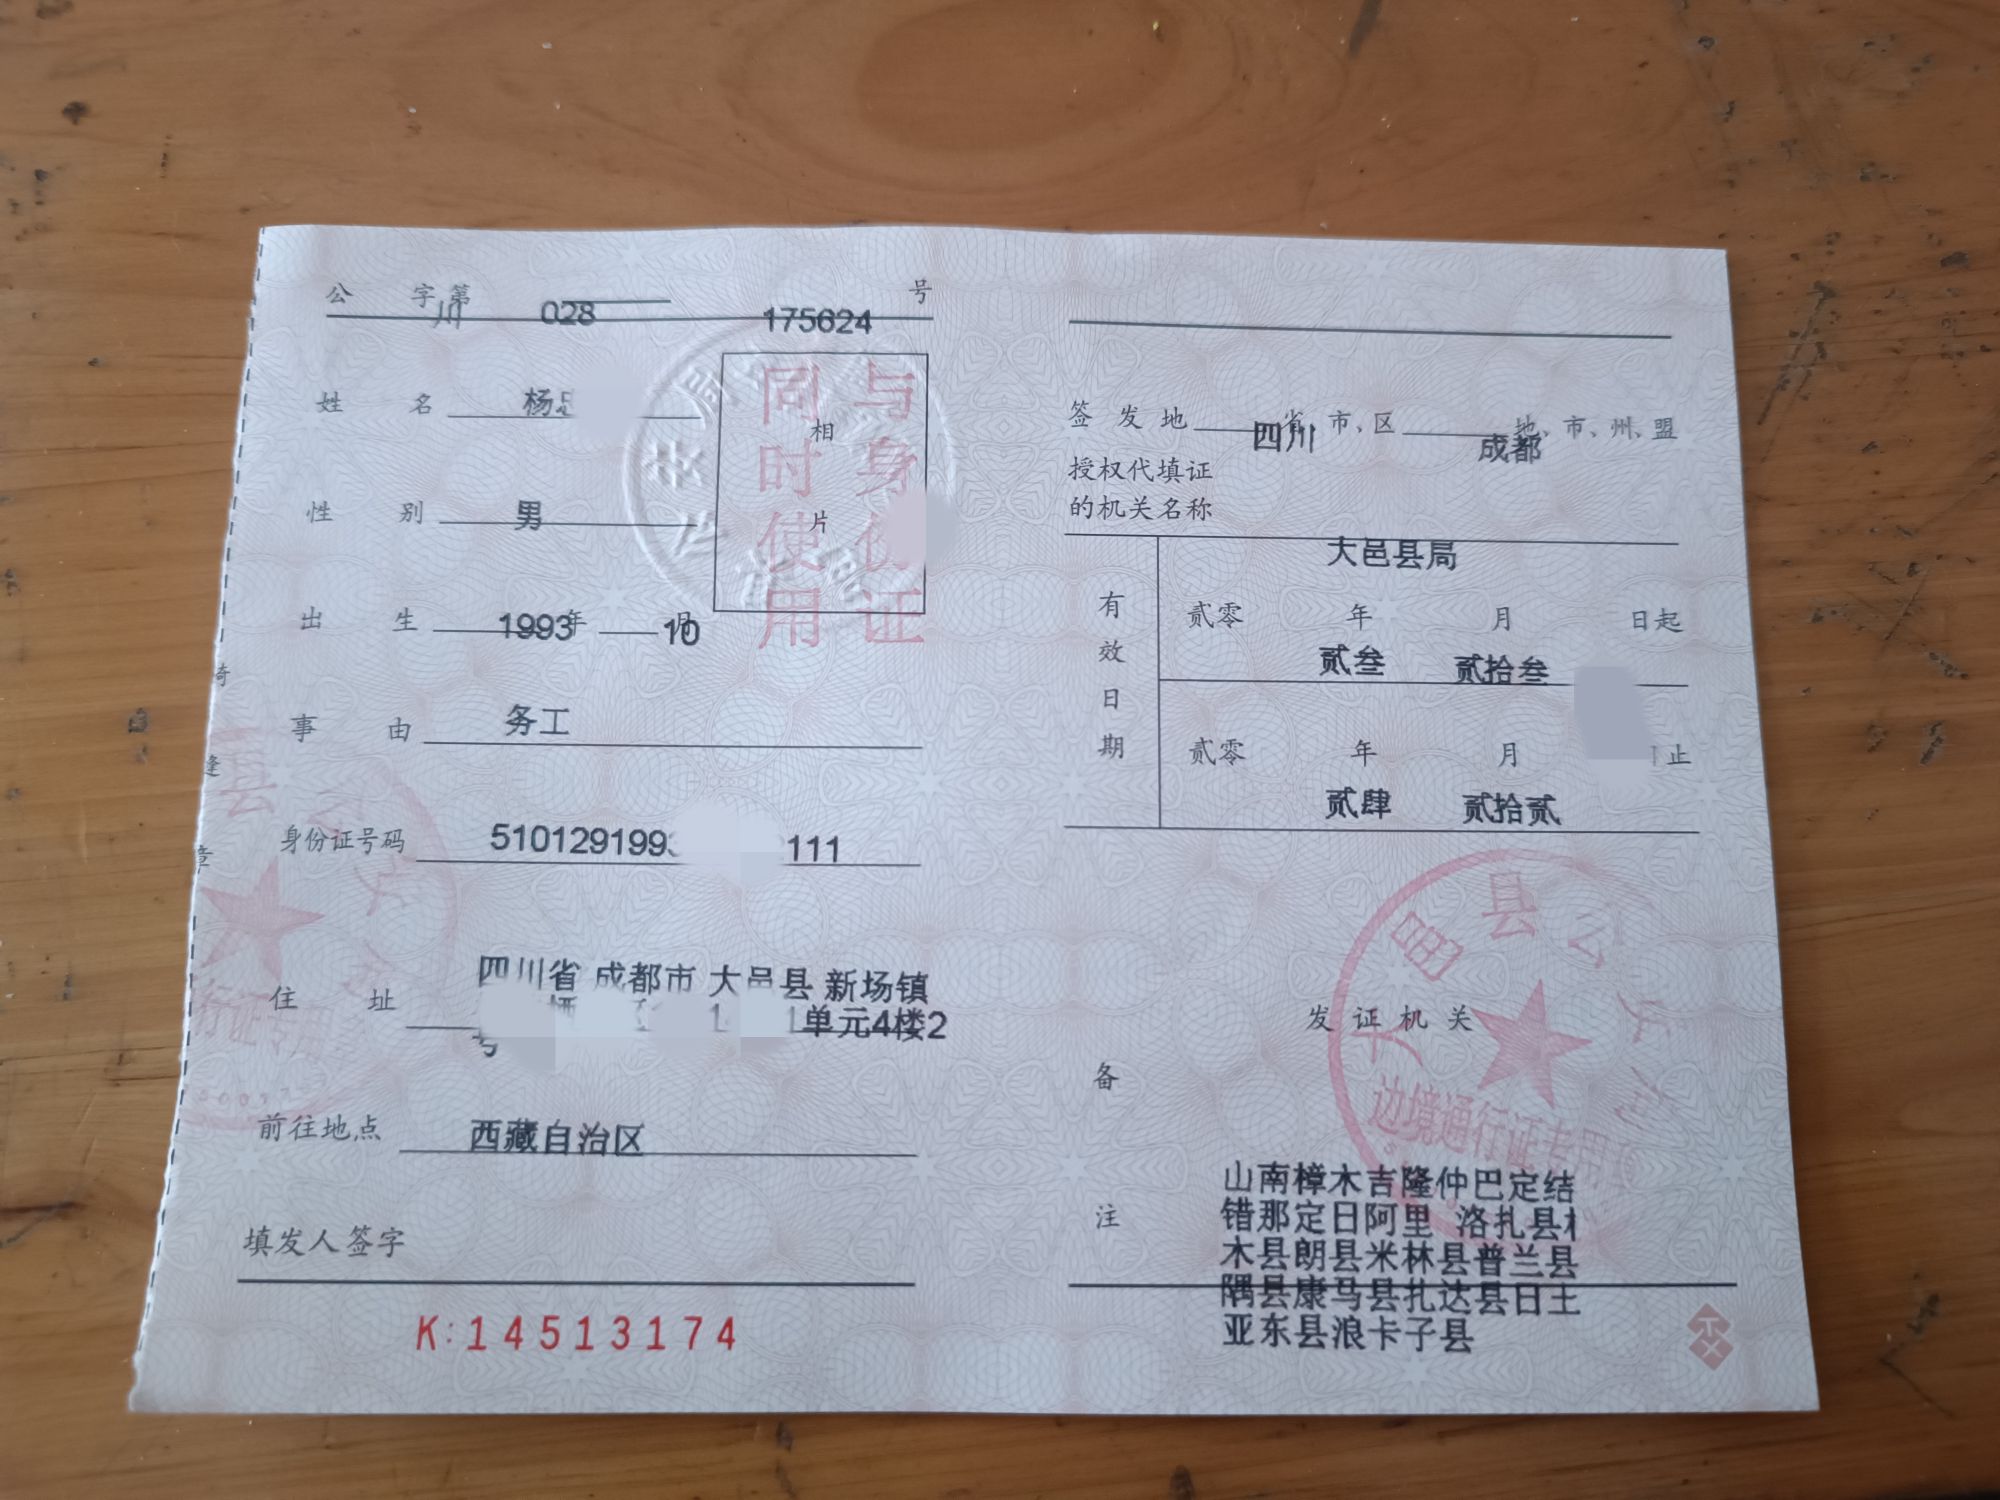 公 字第 号
川 028 175624
姓 名 杨
性 别 男
出 生 1993 年 10 月
事 由 务工
身份证号码 510129199 111
住 址 四川省 成都市 大邑县 新场镇
单元4楼2
号
前往地点 西藏自治区
填发人签字
K:14513174
相
片
与身份证
同时使用
骑
缝
章
县公安
行证专用
签 发 地 四川 省、市、区 成都 地、市、州、盟
授权代填证
的机关名称
大邑县局
有效日期
贰零 年 月 日起
贰叁 贰拾叁
贰零 年 月 止
贰肆 贰拾贰
发 证 机 关
大邑县公安局
边境通行证专用章
备
注
山南樟木吉隆仲巴定结
错那定日阿里 洛扎县
木县朗县米林县普兰县
隅县康马县扎达县日土
亚东县浪卡子县